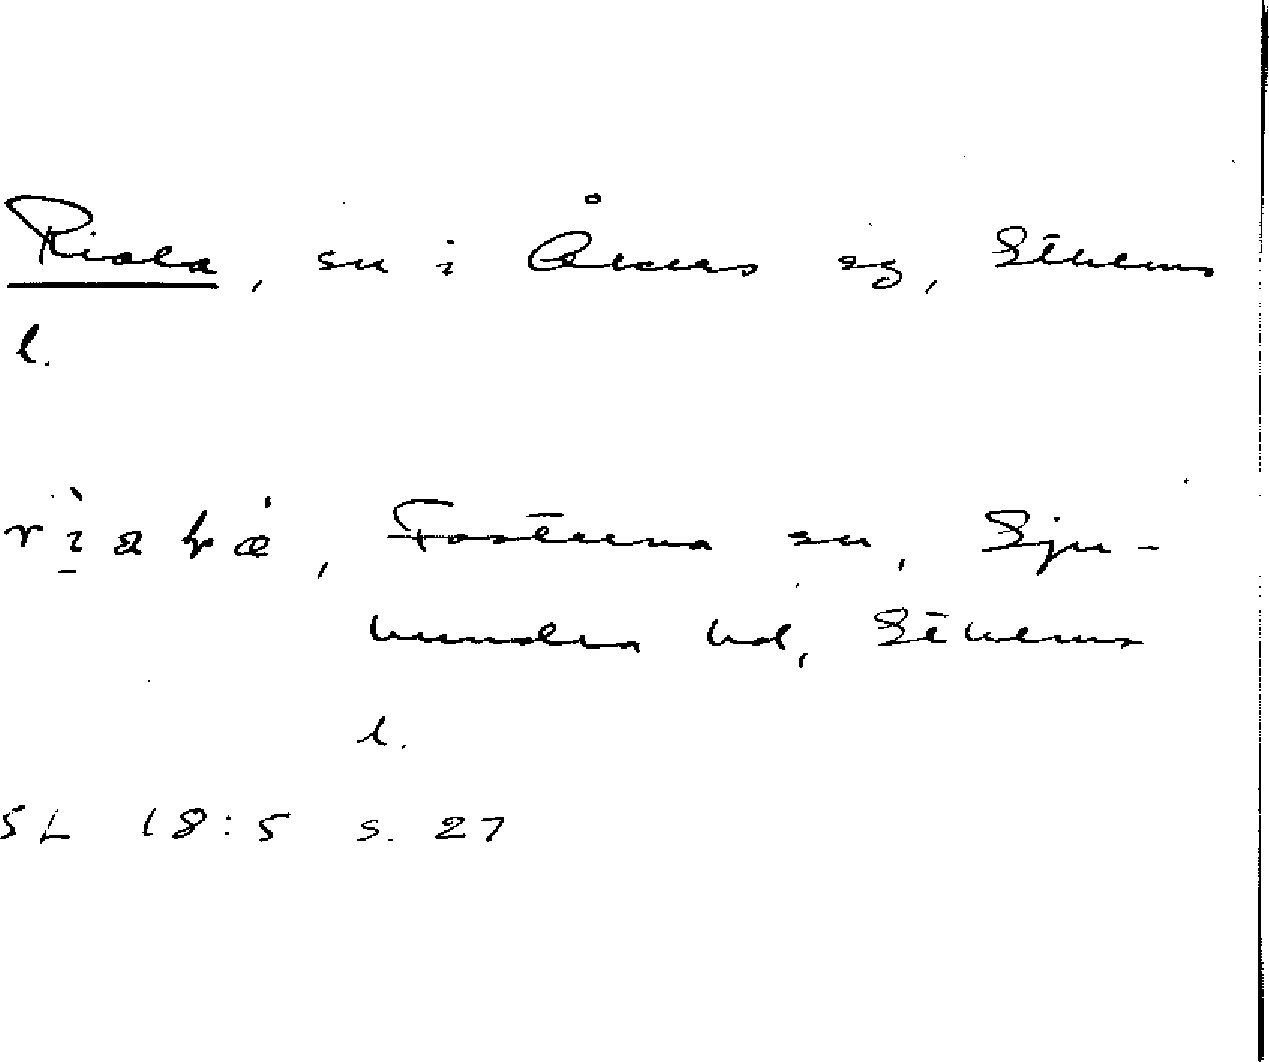 Riala, sn i Åkers sg, Sthlms
l.
Fasterna sn, Sju-
hundra hd, Sthlms
l.
SL 18:5 s. 27